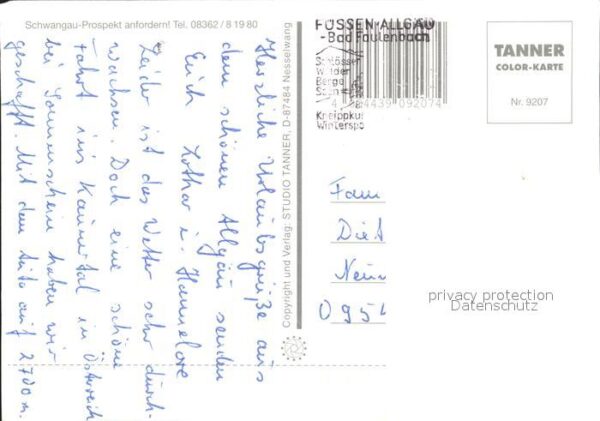 Schwangau-Prospekt anfordern! Tel. 08362 / 8 19 80
Herzliche Urlaubsgrüße aus
dem schönen Allgäu senden
Euch Lothar u. Hannelore
Leider ist das Wetter sehr durch-
wachsen. Doch eine schöne
Fahrt ins Kaunertal in Österreich
bei Sonnenschein haben wir
geschafft. Mit dem Auto auf 2700 m.
Copyright und Verlag: STUDIO TANNER, D-87484 Nesselwang
FÜSSEN-ALLGÄU
-Bad Faulenbach
Schlösser
Wälder
Berge
Seen
Kneippku
Winterspo
4 024439 092074
TANNER
COLOR-KARTE
Nr. 9207
Fam
Diet
095
privacy protection
Datenschutz